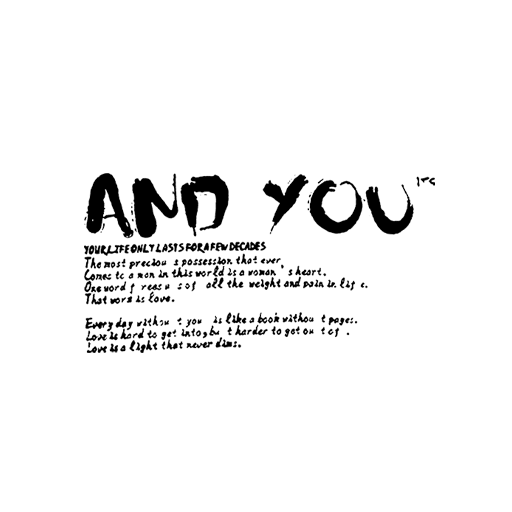 AND YOU
YOUR LIFE ONLY LASTS FOR A FEW DECADES
The most precious possession that ever
Comes to a man in this world is a woman's heart.
One word frees us of all the weight and pain in life.
That word is love.
Every day without you is like a book without pages.
Love is hard to get into, but harder to get out of.
Love is a light that never dims.